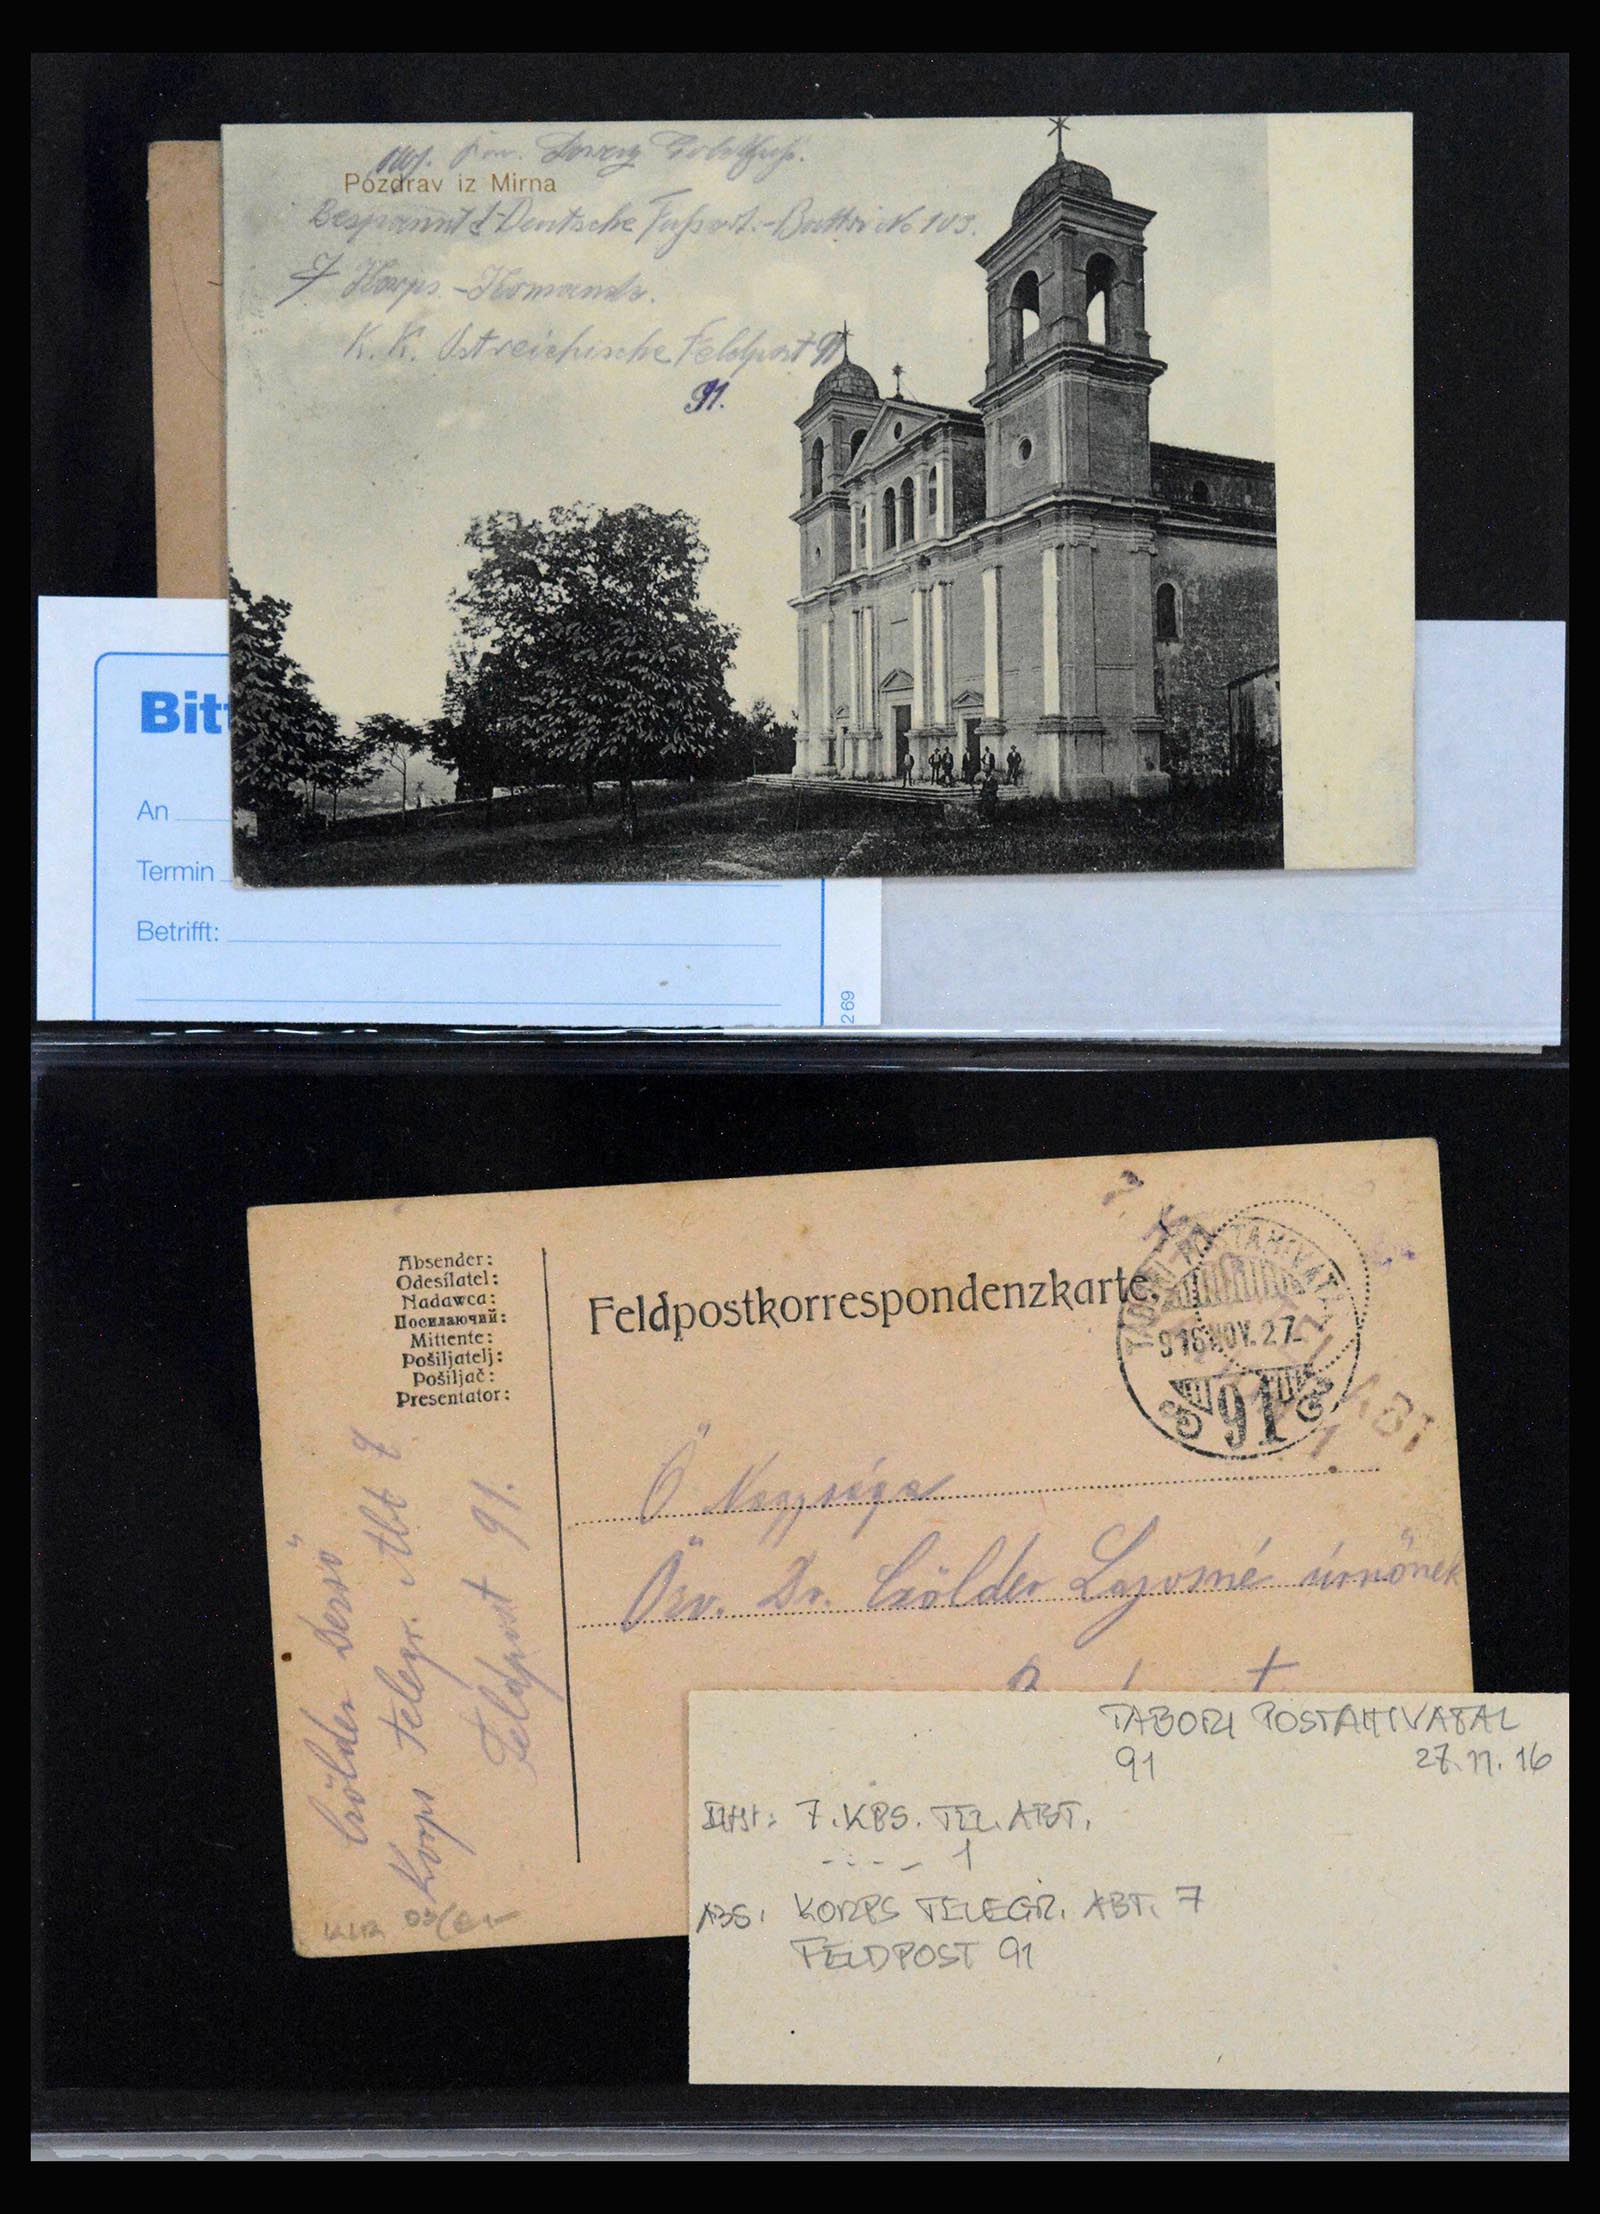 Pozdrav iz Mirna
Bespannt d. Deutsche Fußart.-Battr No 103.
7 Korps-Komando.
K. K. Ostreichische Feldpost 91
91.
Bit
An
Termin
Betrifft:
269
Absender:
Odesílatel:
Nadawca:
Посилаючий:
Mittente:
Pošiljatelj:
Pošiljač:
Presentator:
Feldpostkorrespondenzkarte.
TÁBORI POSTAHIVATAL
916 NOV. 27.
91
Ő Nagysága
Özv. Dr. Czölder Lajosné úrnőnek
Czölder Dezső
Korps Telegr. Abt 7
Feldpost 91.
TABORI POSTAHIVATAL
91 27.11.16
7. KPS. TEL. ABT.
1
ABS: KORPS TELEGR. ABT. 7
FELDPOST 91